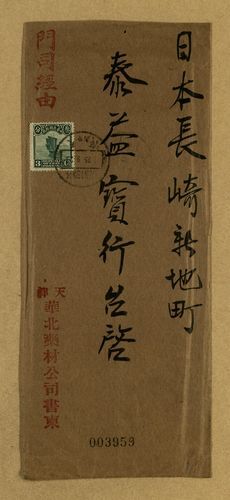 日本長崎新地町
泰益寶行台啓
門司經由
天津
華北藥材公司書柬
003959